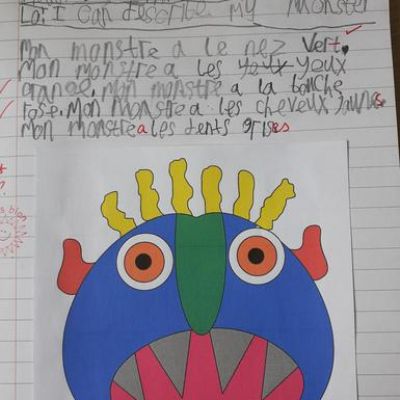 L.O: I can describe my monster
Mon monstre a le nez vert.
Mon monstre a les yeux yeux
orange. Mon monstre a la bouche
rose. Mon monstre a les cheveux jaunes
Mon monstre a les dents grises